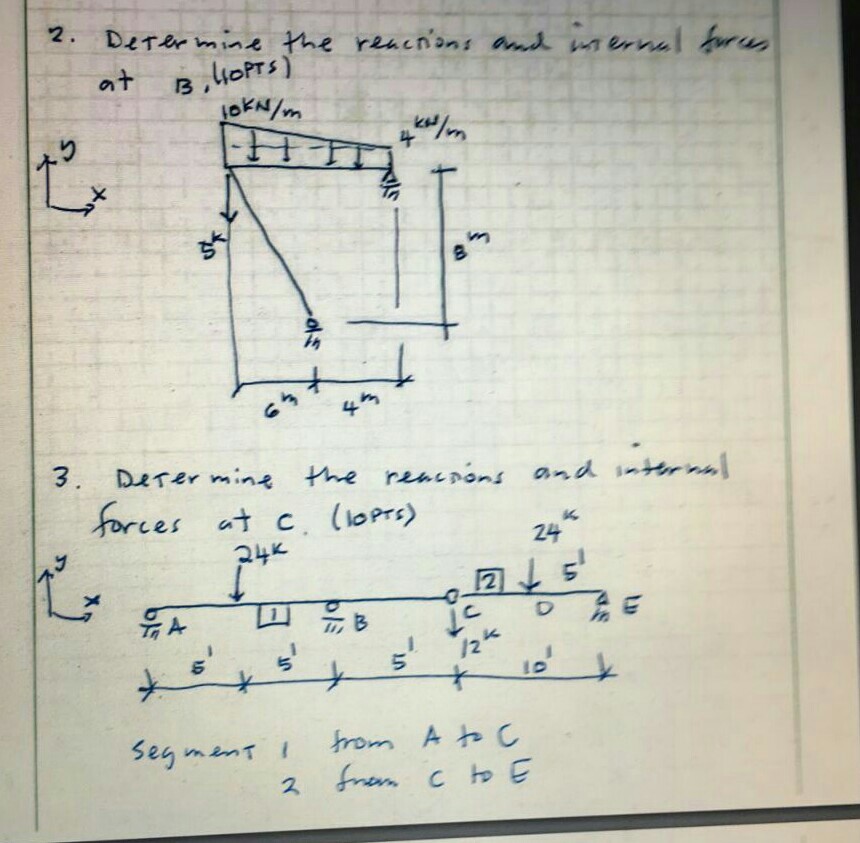 2. Determine the reactions and internal forces
at B. (10PTS)
10KN/m
4 KN/m
y
x
5K
8 m
6 m
4 m
3. Determine the reacions and internal
forces at C. (10PTS)
24K
24 K
y
x
2
5'
A
1
B
C
D
E
12K
5'
5'
5'
10'
Segment 1 from A to C
2 from C to E